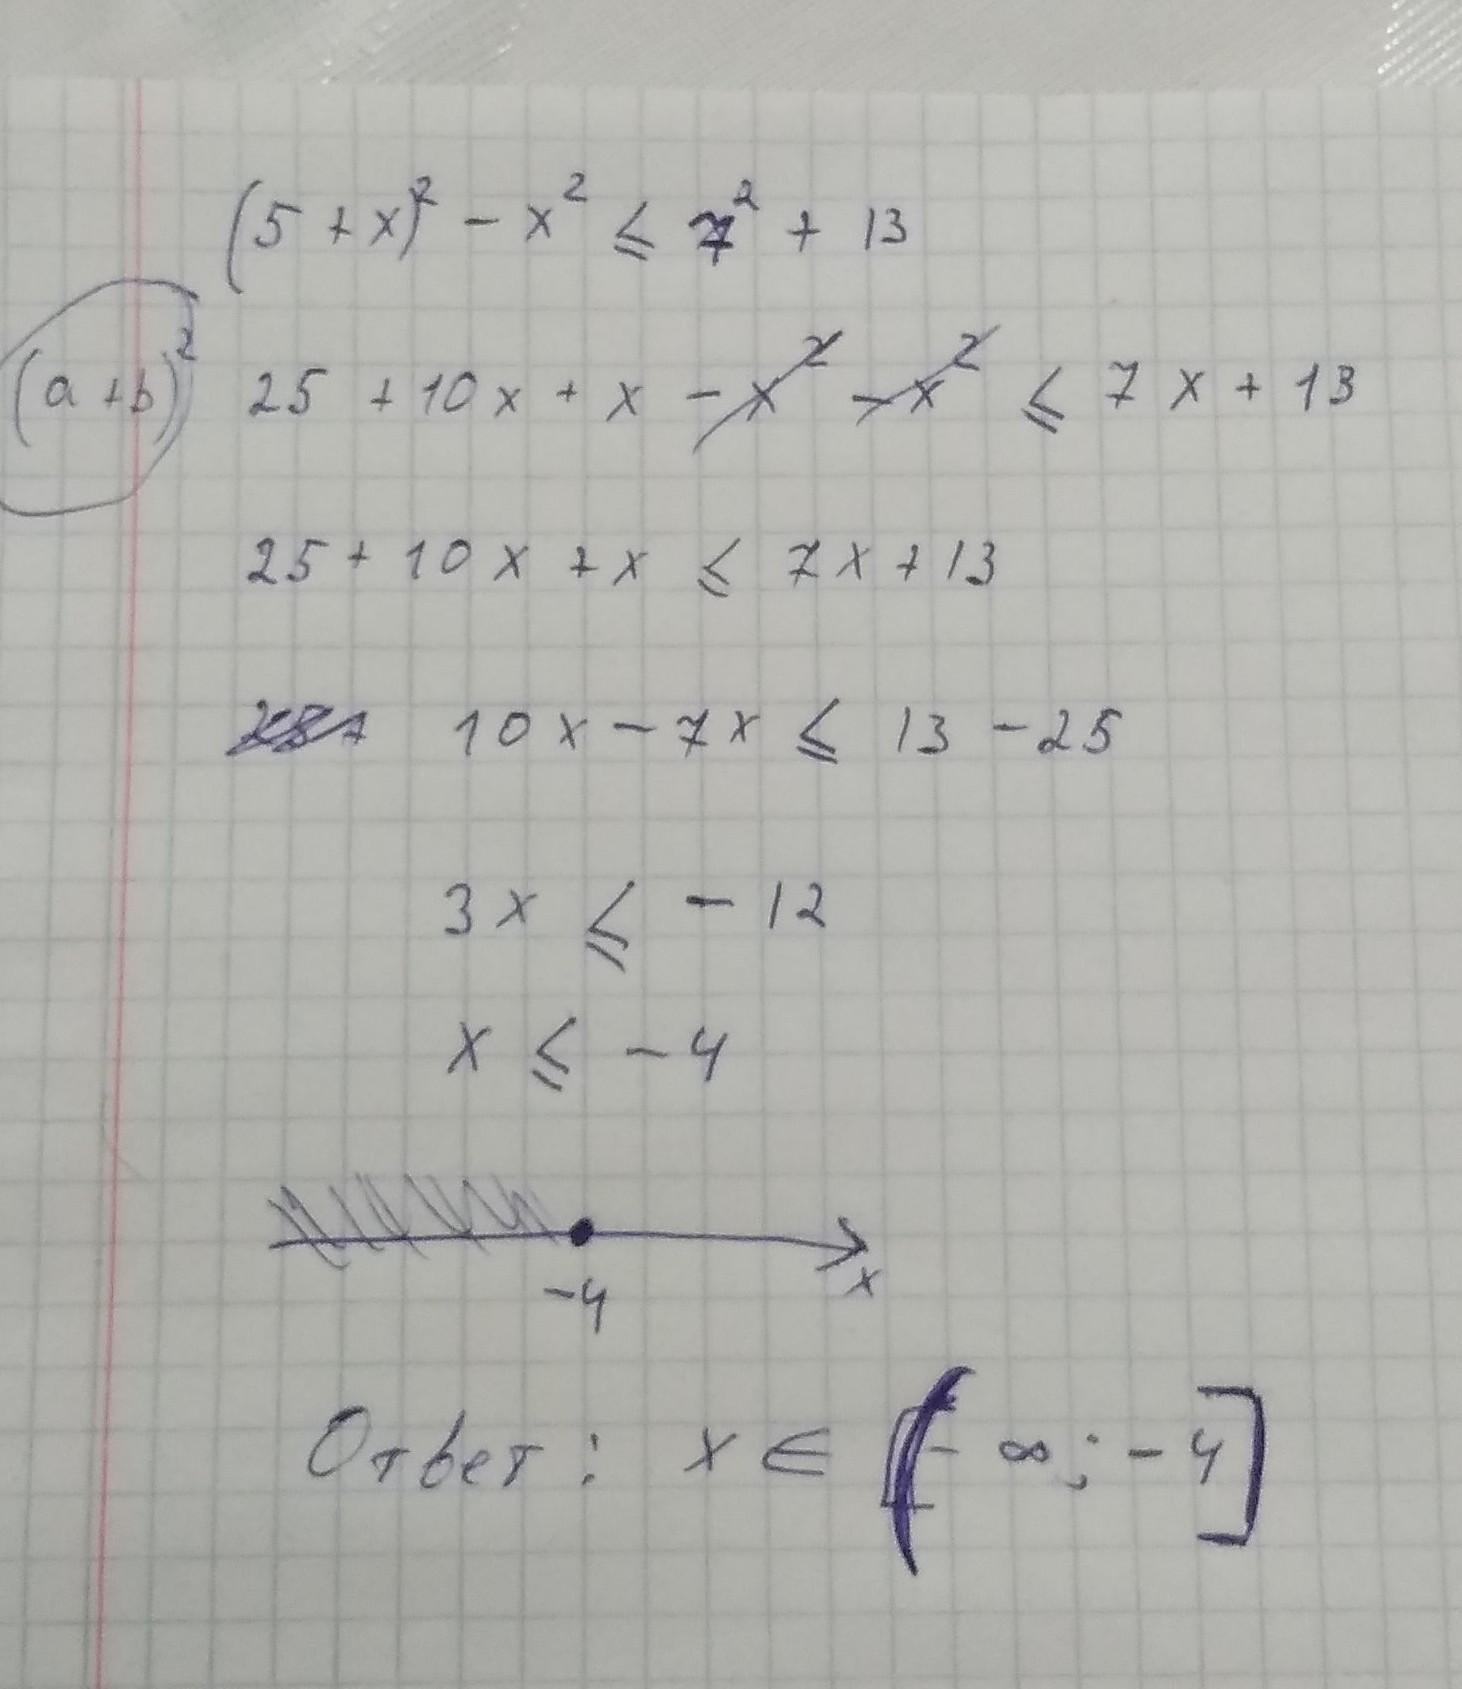 (5 + x)² - x² ≤ 7² + 13
(a + b)² 25 + 10x + x - x² - x² ≤ 7x + 13
25 + 10x + x ≤ 7x + 13
10x - 7x ≤ 13 - 25
3x ≤ - 12
x ≤ - 4
-4 x
Ответ: x ∈ (- ∞; - 4]